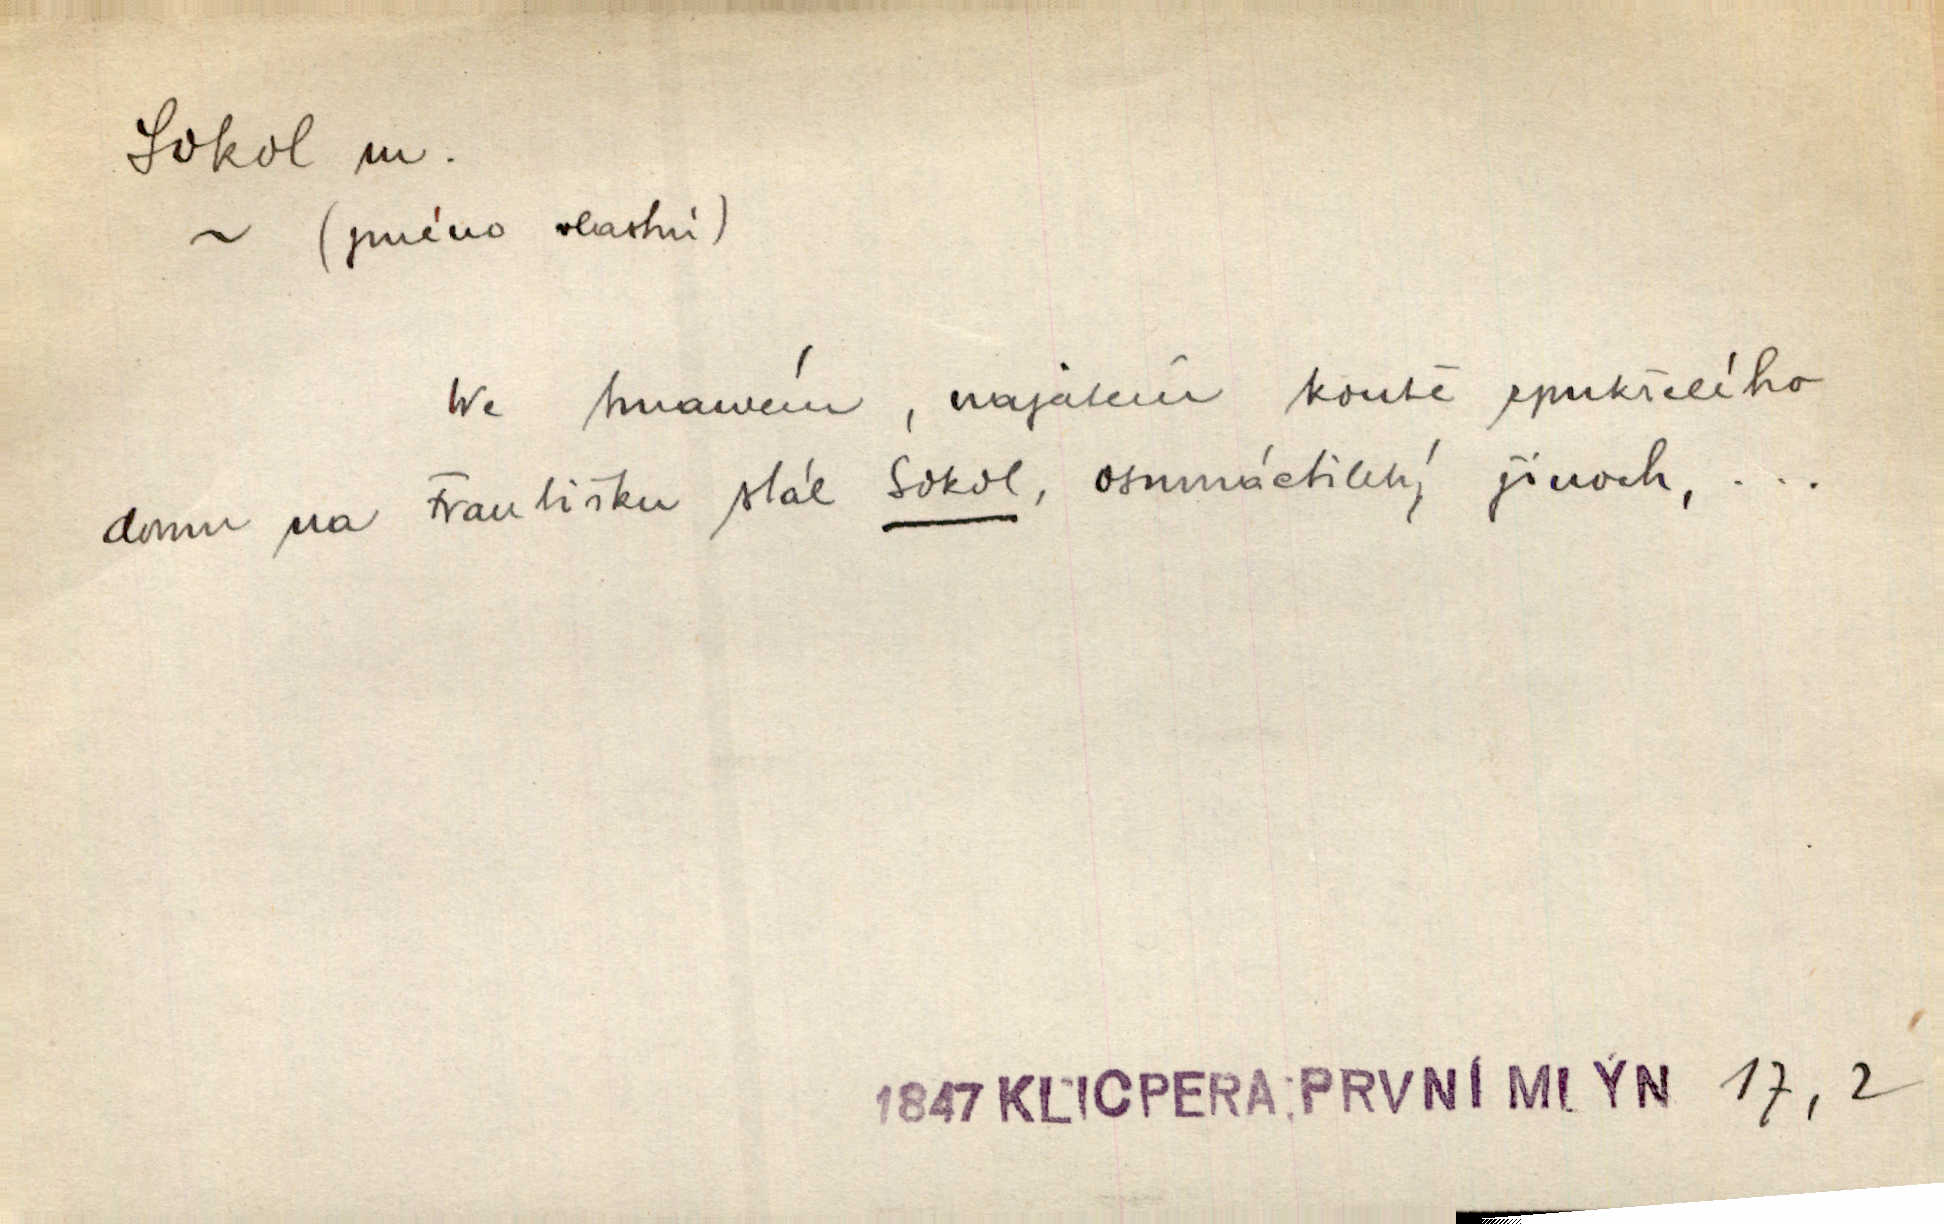 Sokol m.
~ (jméno vlastní)
We tmawém, najatém koutě zpukřelého
domu na Františku stál Sokol, osmnáctiletý jinoch, ...
1847 KLICPERA: PRVNÍ MLÝN 17, 2